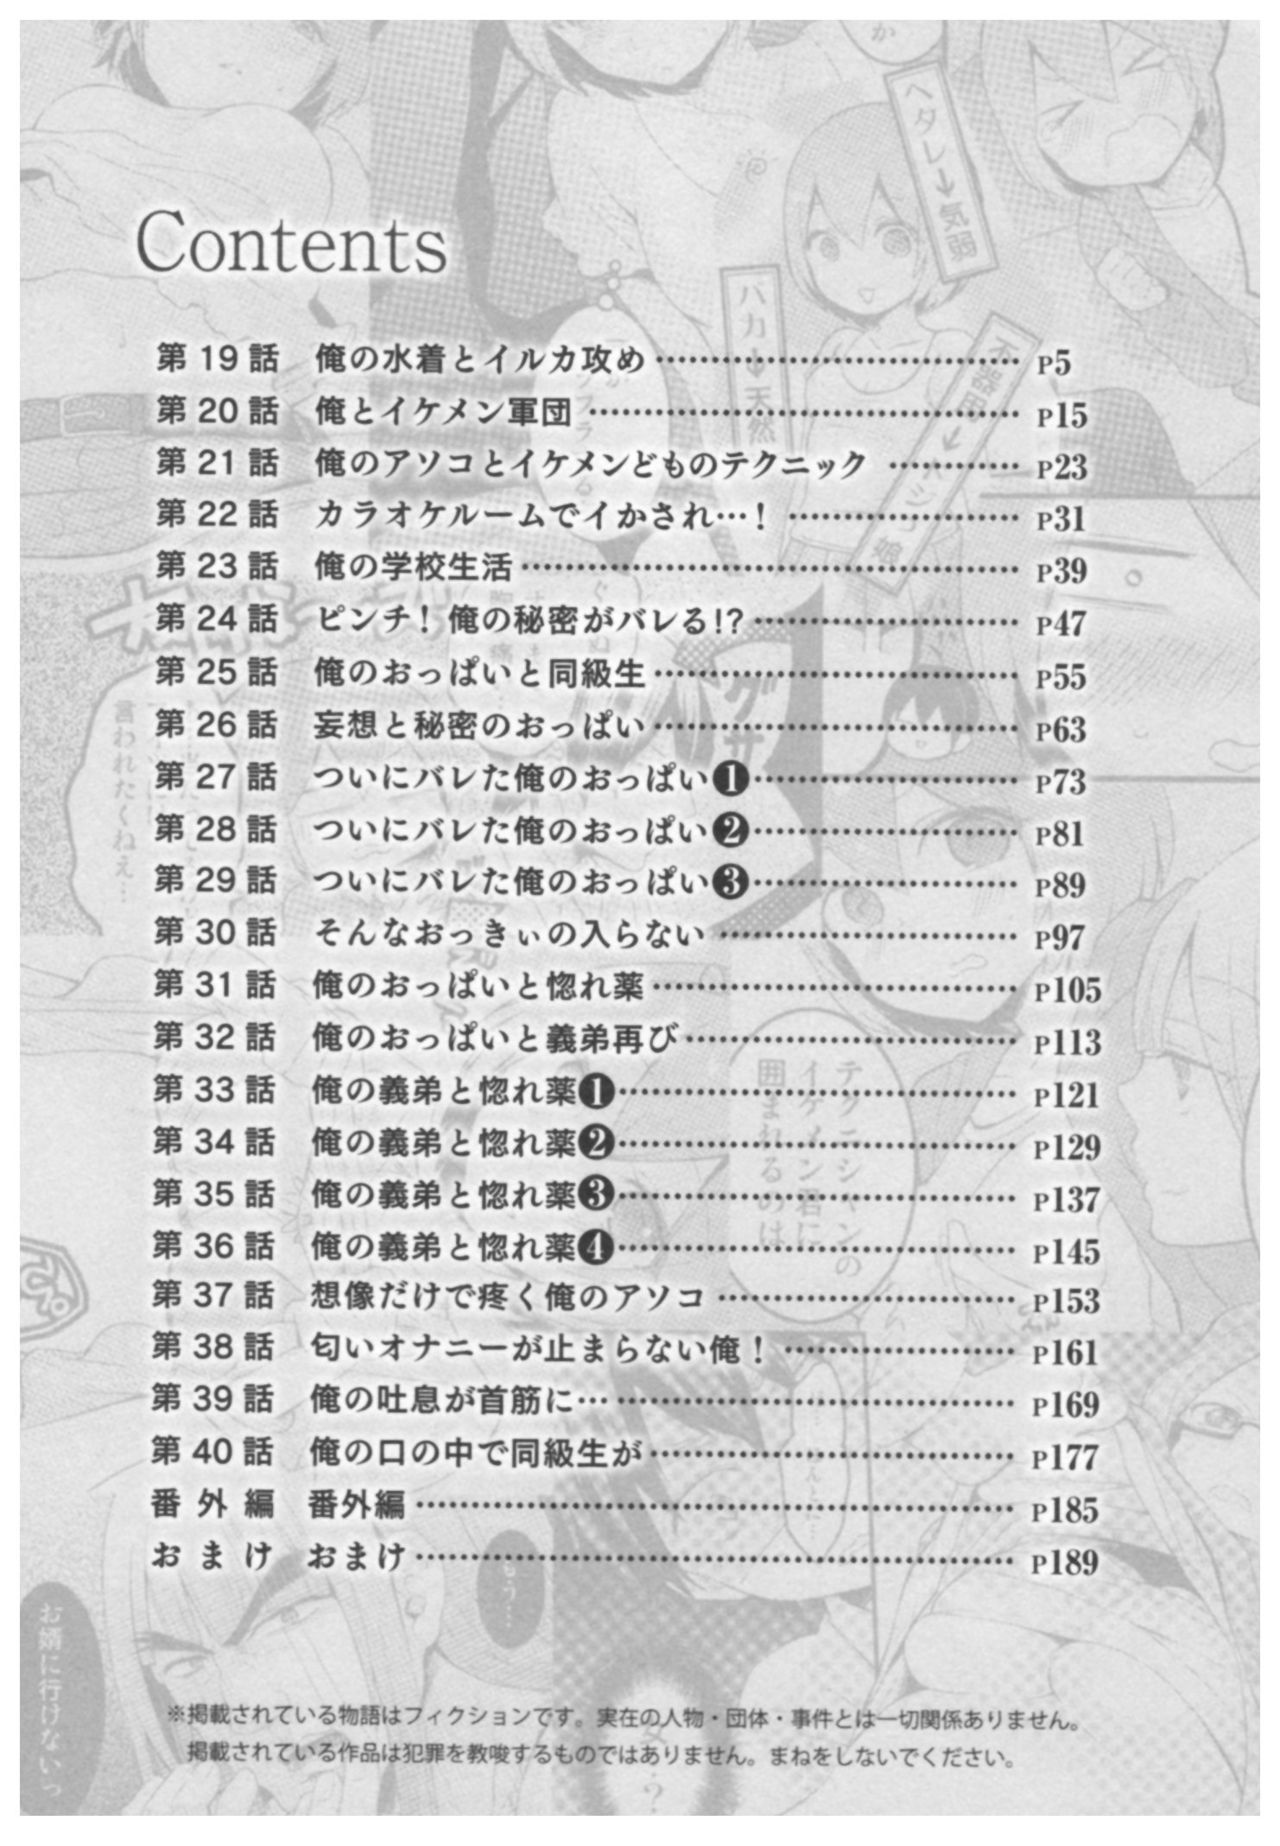 Contents
第 19 話 俺の水着とイルカ攻め ………………………… P5
第 20 話 俺とイケメン軍団 ………………………… P15
第 21 話 俺のアソコとイケメンどものテクニック ………… P23
第 22 話 カラオケルームでイかされ…！ ………………… P31
第 23 話 俺の学校生活 ………………………… P39
第 24 話 ピンチ！俺の秘密がバレる!? ………………… P47
第 25 話 俺のおっぱいと同級生 ………………………… P55
第 26 話 妄想と秘密のおっぱい ………………………… P63
第 27 話 ついにバレた俺のおっぱい❶ ………………… P73
第 28 話 ついにバレた俺のおっぱい❷ ………………… P81
第 29 話 ついにバレた俺のおっぱい❸ ………………… P89
第 30 話 そんなおっきぃの入らない ………………… P97
第 31 話 俺のおっぱいと惚れ薬 ………………………… P105
第 32 話 俺のおっぱいと義弟再び ………………………… P113
第 33 話 俺の義弟と惚れ薬❶ ………………………… P121
第 34 話 俺の義弟と惚れ薬❷ ………………………… P129
第 35 話 俺の義弟と惚れ薬❸ ………………………… P137
第 36 話 俺の義弟と惚れ薬❹ ………………………… P145
第 37 話 想像だけで疼く俺のアソコ ………………… P153
第 38 話 匂いオナニーが止まらない俺！ ………………… P161
第 39 話 俺の吐息が首筋に… ………………………… P169
第 40 話 俺の口の中で同級生が ………………………… P177
番 外 編 番外編 ………………………… P185
お ま け おまけ ………………………… P189
※掲載されている物語はフィクションです。実在の人物・団体・事件とは一切関係ありません。
掲載されている作品は犯罪を教唆するものではありません。まねをしないでください。
か
ヘタレ→気弱
バカ→天然
グサ
言われたくねえ…
テクニシャンの
イケメン君に
囲まれるのは
もう…
お婿に行けないっ
？